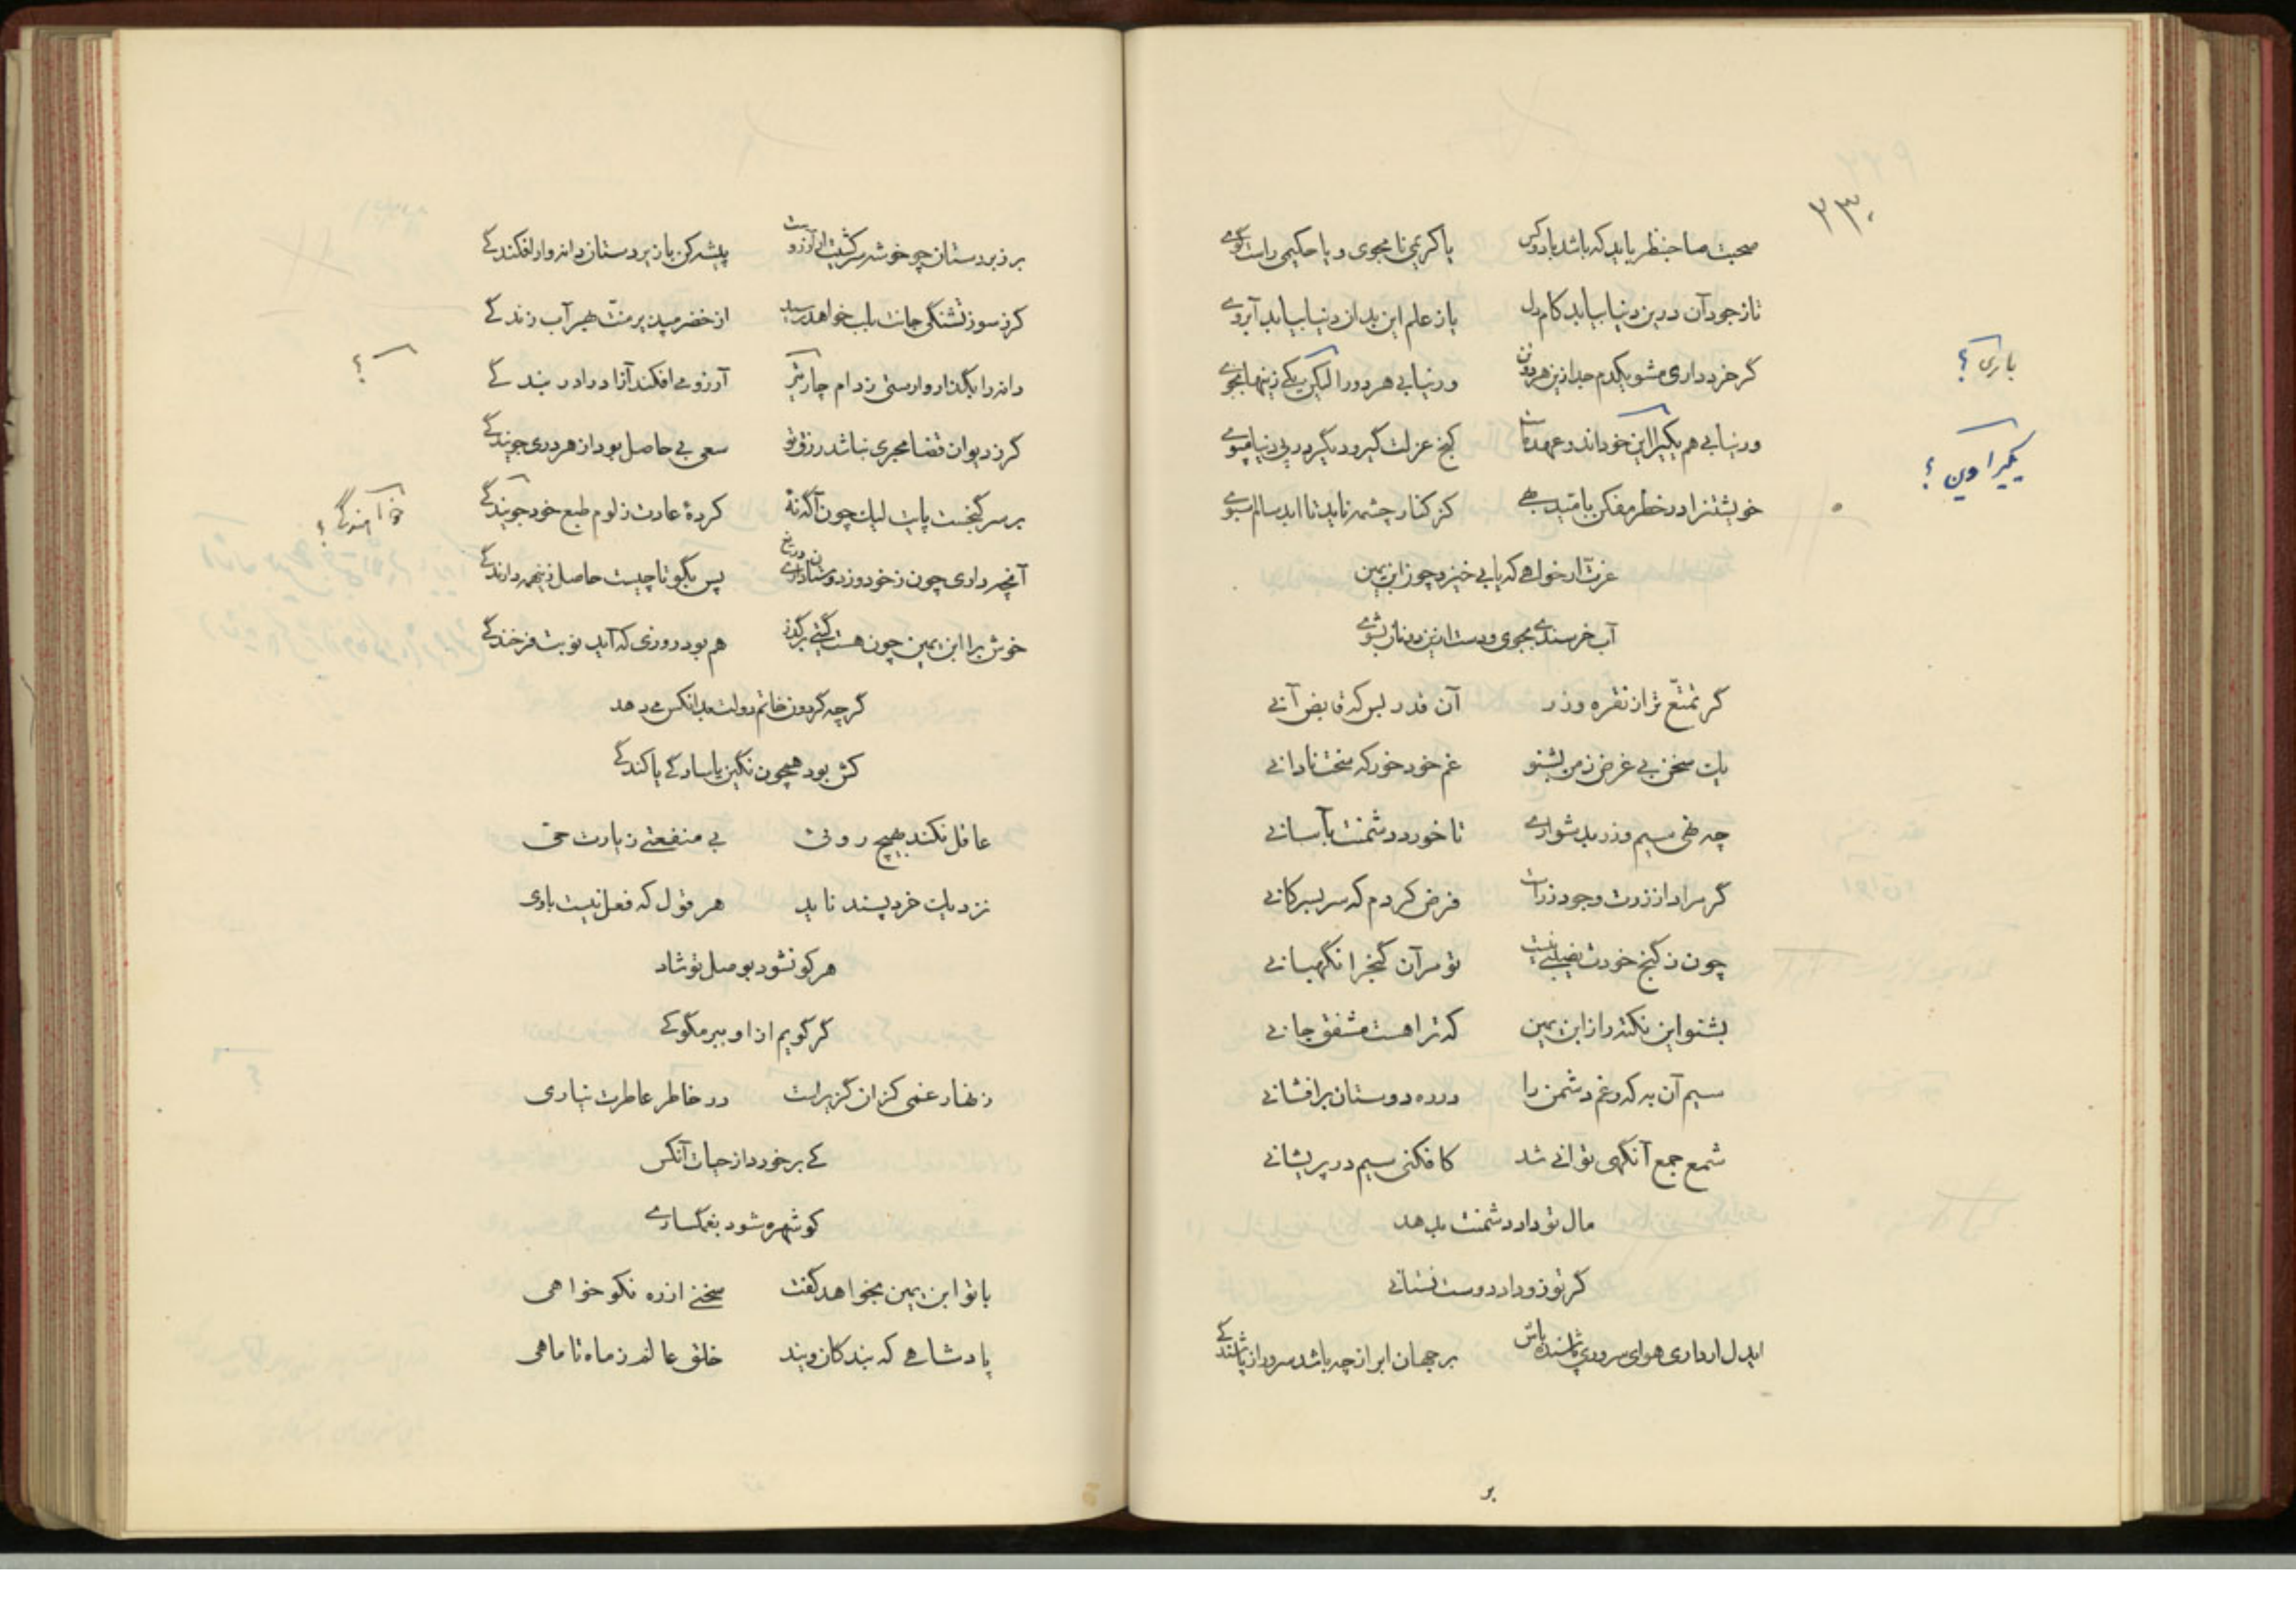 ۲۳۰
صحبت صاحبنظر باید که باشد با دو کس    یا کریمی نامجوی و یا حکیمی راست گوی
تا ز جود آن درین دنیا بیابد کام دل    یا ز علم این بدان دنیا بیابد آبروی
گر خرد داری مشو یکدم جدا زین هر دو تن    ور نیابی هر دو را لیکن یکی زینها بجوی
باری ؟
ور نیابی هم یکیرا این خود اند و عهد ماست    کنج عزلت گیر و دیگر در پی دنیا مپوی
یکیرا وین ؟
خویشتن را در خطر مفکن بامید بهی    کز کنار چشمه ناید تا ابد سالم سبوی
عزت ار خواهی که یابی خیز و چون ابن یمین
آب خرسندی بجوی و دست ازین دونان بشوی
گر تمتع ترا ز نقره و زر    آن قدر بس که قابض آنی
یک سخن بی غرض ز من بشنو    غم خود خور که سخت نادانی
چه نهی سیم و زر بدشواری    تا خورد دشمنت بآسانی
گر مراد از زرت وجود زر است    فرض کردم که سر بسر کانی
چون ز گنج خودت نصیبی نیست    تو مر آن گنج را نگهبانی
بشنو این نکته را ز ابن یمین    که ترا هست مشفق جانی
سیم آن به که رغم دشمن را    در ره دوستان برافشانی
شمع جمع آنگهی توانی شد    کافکنی سیم در پریشانی
مال تو دارد دشمنت بدهد
گر تو زو داد دوست نستانی
ایدل ار داری هوای سروری پاشنده باش    بر جهان ابر از چه باشد سرور از پاشندگی
بر
بر زبردستان چو خوشه سرکشیت ار آرزوست    پیشه کن با زیردستان دانه وار افکندگی
کر ز سوز تشنگی جانت بلب خواهد رسید    از خضر مپذیر منت بهر آب زندگی
دانه را بگذار و وارستی ز دام چار تیر    آرزو می افکند آزاد را در بندگی
؟
کر ز دیوان قضا مجری نباشد رزق تو    سعی بی حاصل بود از هر دری جویندگی
بر سر گنجست پایت لیک چون آگه نهٔ    کردهٔ عادت ز لوم طبع خود جویندگی
آنچه داری چون ز خود وز دوستان داری دریغ    پس بگو تا چیست حاصل زینهمه دارندگی
خوش برا ابن یمین چون هست گیتی بر گذر    هم بود روزی که آید نوبت فرخندگی
گرچه گردون خاتم دولت بدانکس می دهد
کش بود همچون نگین با سادگی یا کندگی
عاقل نکند بهیچ رویی    بی منفعتی زیارت حی
نزدیک خرد پسند ناید    هر قول که فعل نیست باوی
هر کو نشود بوصل تو شاد
گر گویم از او ببر مگو کی
زنهار غمی کزان گزیرست    در خاطر عاطرت نیاری
کی بر خورد از حیات آنکس
کو شهره شود بغمگساری
با تو ابن یمین بخواهد گفت    سخنی از ره نکو خواهی
پادشاهی که بندکان ویند    خلق عالم ز ماه تا ماهی